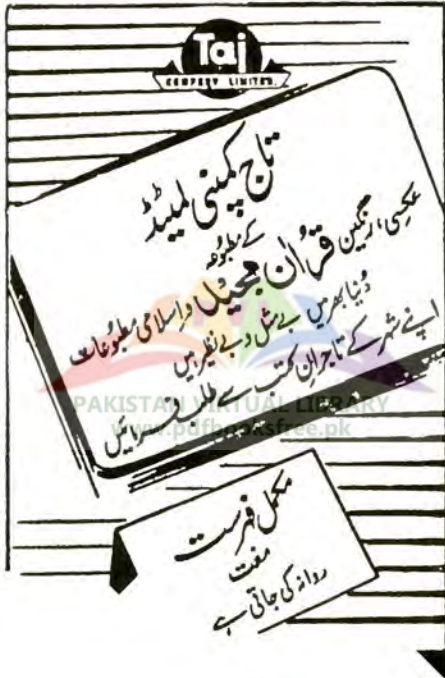 Taj
COMPANY LIMITED.
تاج کمپنی لمیٹڈ
کے مطبوعہ
عکسی، رنگین قرآن مجید و اسلامی مطبوعات
دنیا بھر میں بے مثل و بے نظیر ہیں
اپنے شہر کے تاجرانِ کتب سے طلب فرمائیں
PAKISTAN VIRTUAL LIBRARY
www.pdfbooksfree.pk
مکمل فہرست
مفت
روانہ کی جاتی ہے